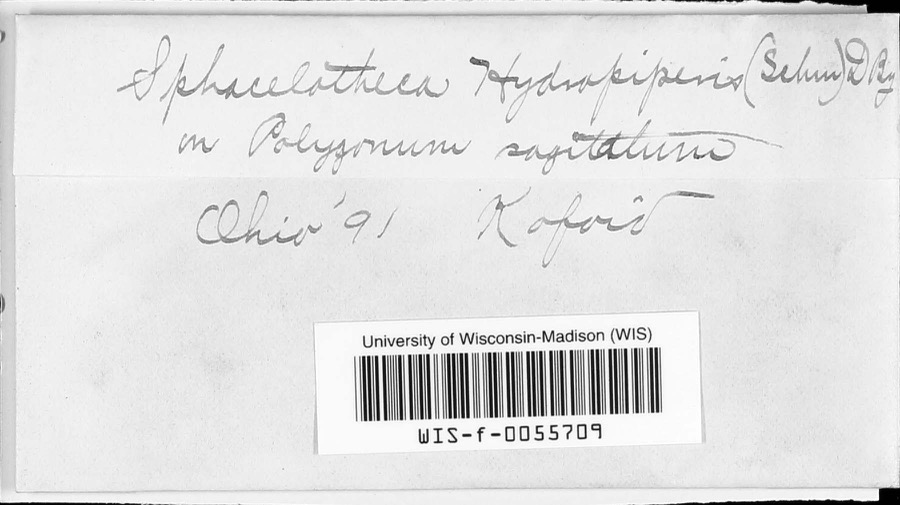 Sphacelotheca Hydropiperis (Schum) D By
on Polygonum sagittatum
Ohio '91 Kofoid
University of Wisconsin-Madison (WIS)
WIS-f-0055709